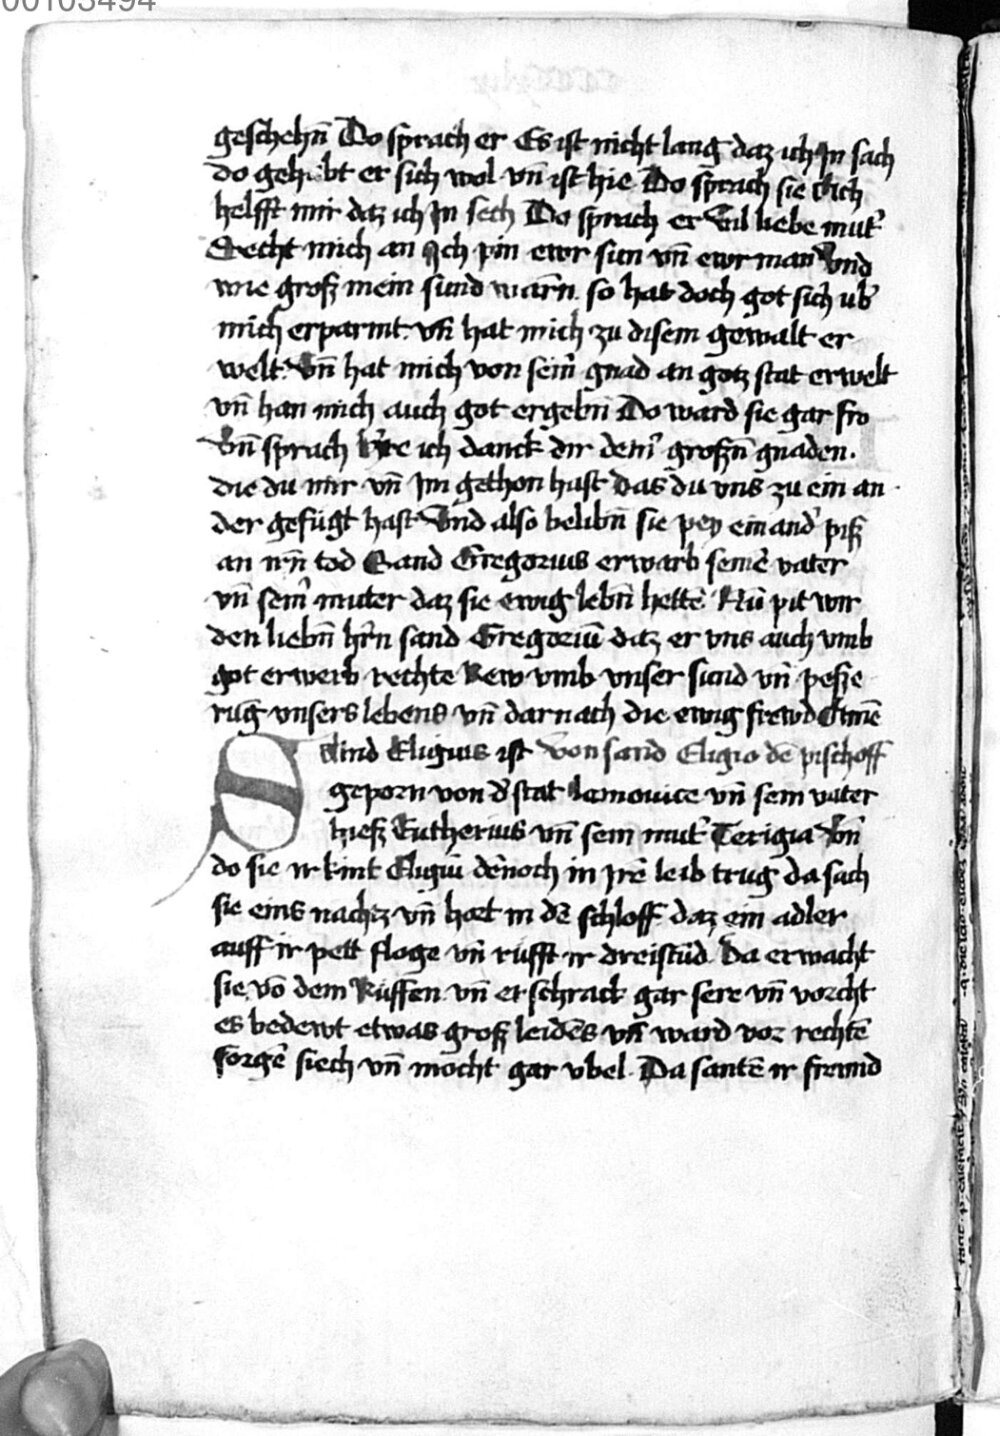 00103494
geschehn̄ Do sprach er Es ist nicht lang daz ich Jn sach
do gehabt er sich wol vn̄ ist hie Do sprach sie Mich
helfft mir daz ich Jn sech Do sprach er Vil liebe mut̕
Secht mich an Jch pin ewr sun vn̄ ewr man Vnd
wie groß mein sund warn̄ so hat doch got sich ub̕
mich erparmt vn̄ hat mich zu disem gewalt er
welt Vn̄ hat mich von sein̄ gnad an gotz stat erwelt
vn̄ han mich auch got ergebn̄ Do ward sie gar fro
Vn̄ sprach H̕re ich danck dir dein̕ großn̄ gnaden.
die du mir vn̄ Jm gethon hast Das du vns zu ein an
der gefügt hast Vnd also belibn̄ sie pey einand̕ piß
an irn̄ tod Sand Gregorius erwarb seinē vater
vn̄ sein̕ muter daz sie ewig lebn̄ hettē Nū pit wir
den liebn̄ hr̄n sand Gregoriū daz er vns auch vmb
got erwerb rechte Rew vmb vnser sund vn̄ peße
rūg vnsers lebens vn̄ darnach die ewig frewd Amē
Sand Eligius ist Von sand Eligio dē pischoff
geporn von d̕ stat lemouice vn̄ sein vater
hieß Eutherius vn̄ sein mut̕ Terigia Vn̄
do sie ir kint Eligiū dēnoch in Jrē leib trug da sach
sie eins nachtz vn̄ hort in dē schloff daz ein adler
auff ir pett floge vn̄ rufft ir dreistūd Da erwacht
sie vō dem Ruffen vn̄ erschrack gar sere vn̄ vorcht
es bedewt etwas groß leidēs vn̄ ward vor rechtē
sorgē siech vn̄ mocht gar vbel Da santē ir frewnd